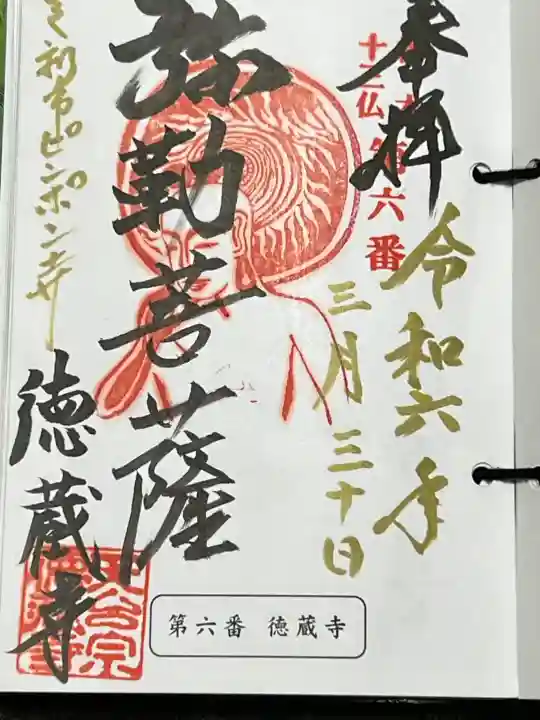 奉拝
十三仏第六番
令和六年
三月三十日
弥勒菩薩
足利市ピンポン寺
徳蔵寺
第六番 徳蔵寺